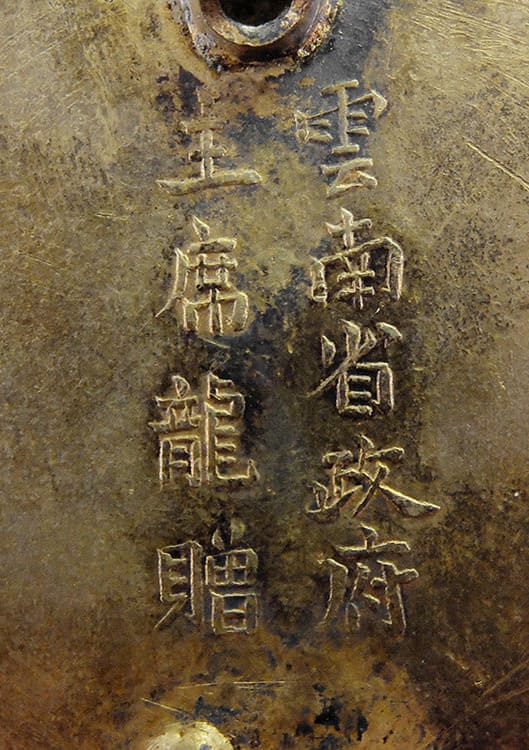 雲南省政府
主席龍贈